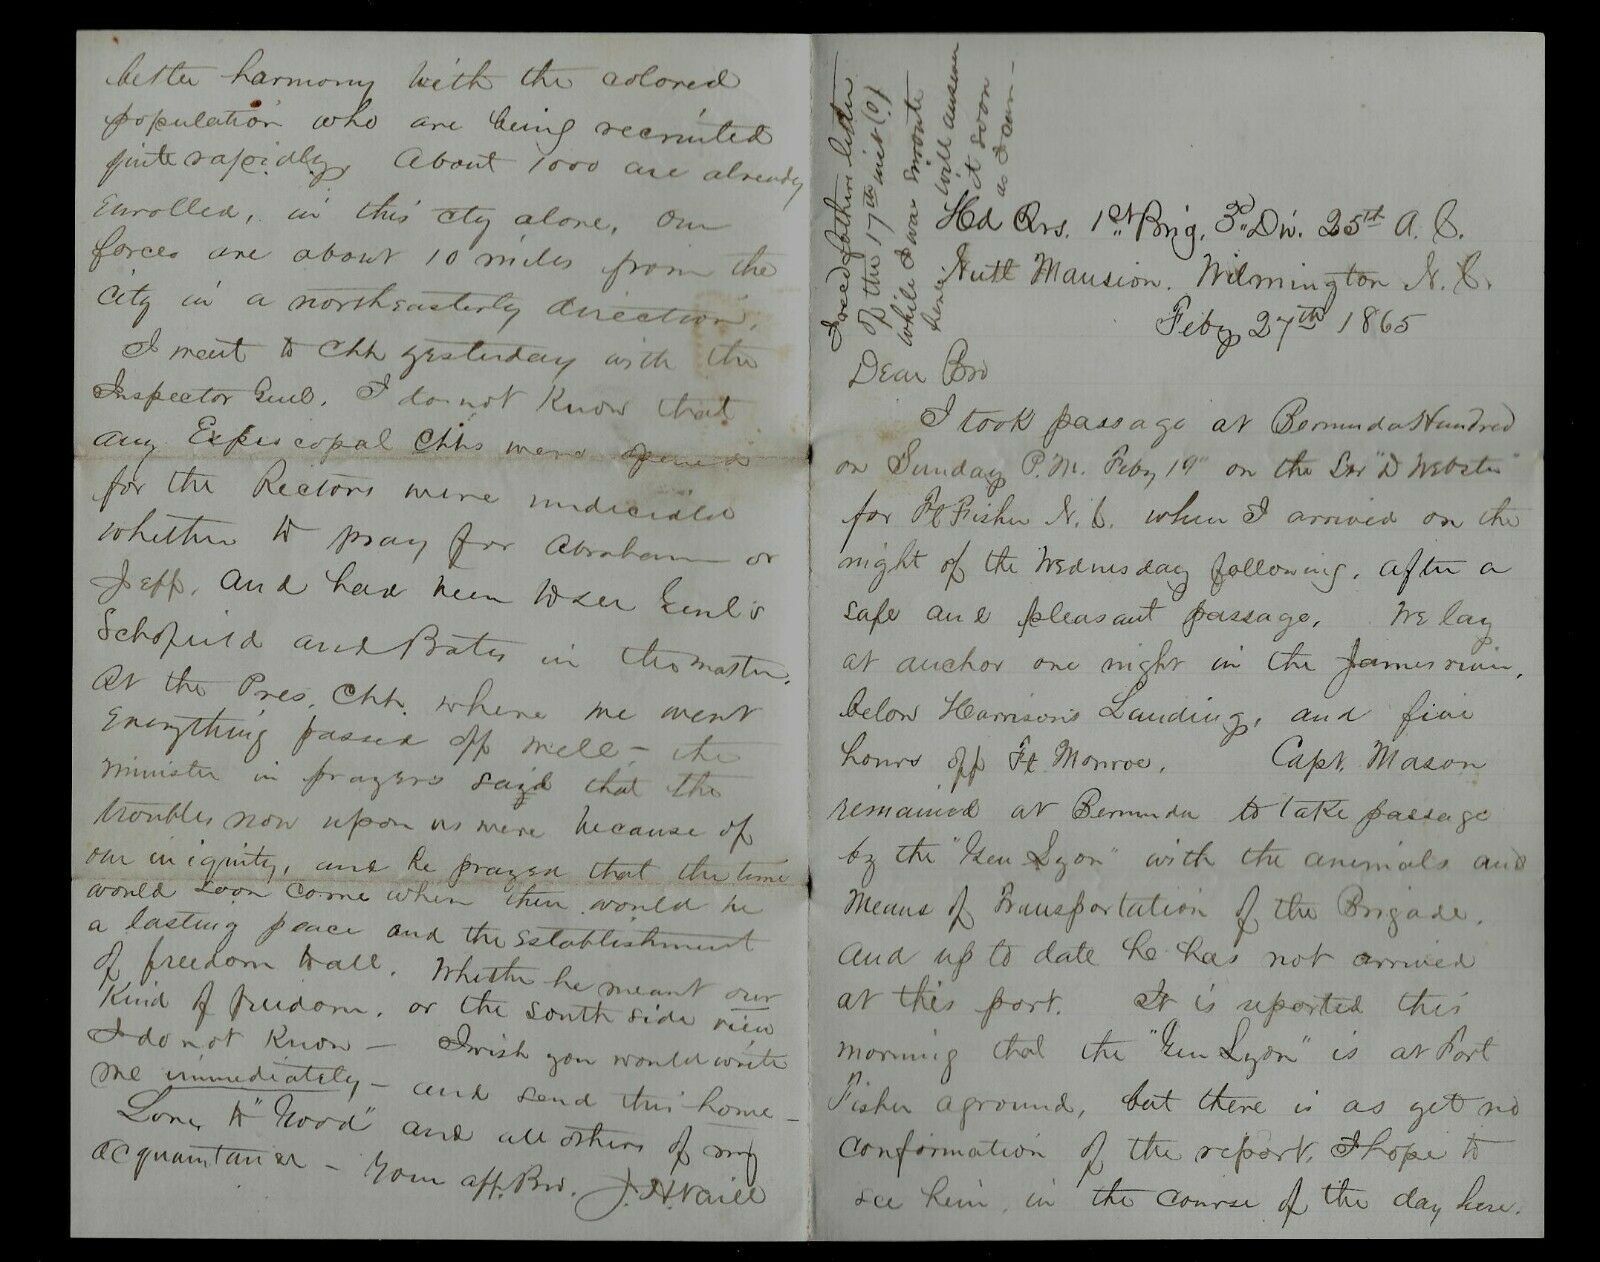 Hd Qrs. 1st Brig. 3d Div. 25th A. C.
Nutt Mansion. Wilmington N. C.
Feby 27th 1865
Dear Bro
I took passage at Bermuda Hundred
on Sunday P.M. Feby 19" on the Str "D Webster"
for Ft Fisher N. C. when I arrived on the
night of the Wednesday following, after a
safe and pleasant passage. We lay
at anchor one night in the James river,
below Harrison's Landing, and five
hours off Ft Monroe. Capt. Mason
remained at Bermuda to take passage
by the "Gen Lyon" with the animals and
means of Transportation of the Brigade.
and up to date he has not arrived
at this port. It is reported this
morning that the "Gen Lyon" is at Fort
Fisher aground, but there is as yet no
conformation of the report. I hope to
see him in the course of the day here.
I recd father's letter
of the 17th inst (?)
while I was enroute
here will answer
it soon
as I can —
better harmony with the colored
population who are being recruited
quite rapidly, About 1000 are already
enrolled, in this cty alone, Our
forces are about 10 miles from the
City in a northeasterly direction.
I went to Chh yesterday with the
Inspector Genl. I do not know that
any Expiscopal Chhs were opened
for the Rectors were undecided
whether to pray for Abraham or
Jeff. and had been to see Genl's
Schofield and Bates in the matter.
At the Pres. Chh. where we went
everything passed off well — the
minister in prayers said that the
troubles now upon us were because of
our iniquity, and he prayed that the time
would soon come when there would be
a lasting peace and the establishment
of freedom to all. Whether he meant our
kind of freedom, or the south side view
I do not know — I wish you would write
me immediately — and send this home —
Love to "Good" and all others of my
acquaintance — Your aff. Bro. J. H. Naill